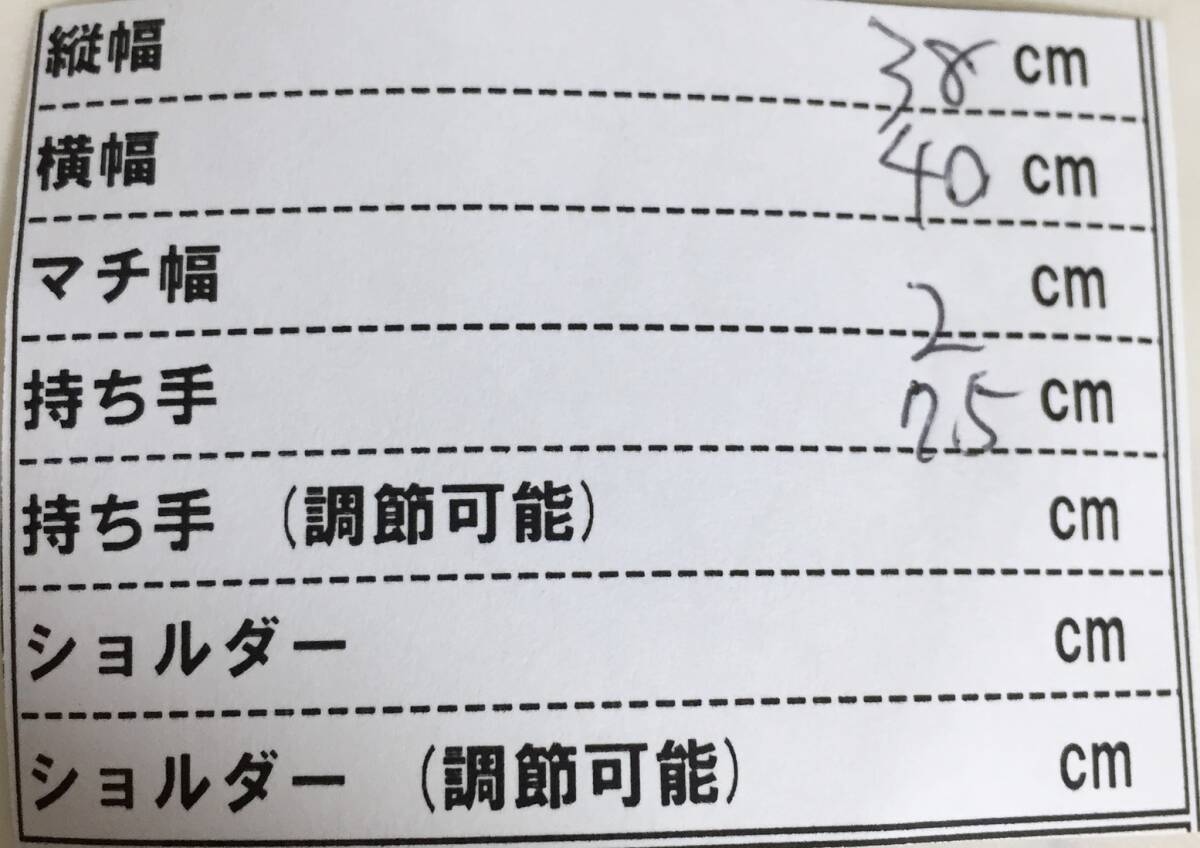 縦幅 38 cm
横幅 40 cm
マチ幅 2 cm
持ち手 7.5 cm
持ち手 (調節可能) cm
ショルダー cm
ショルダー (調節可能) cm